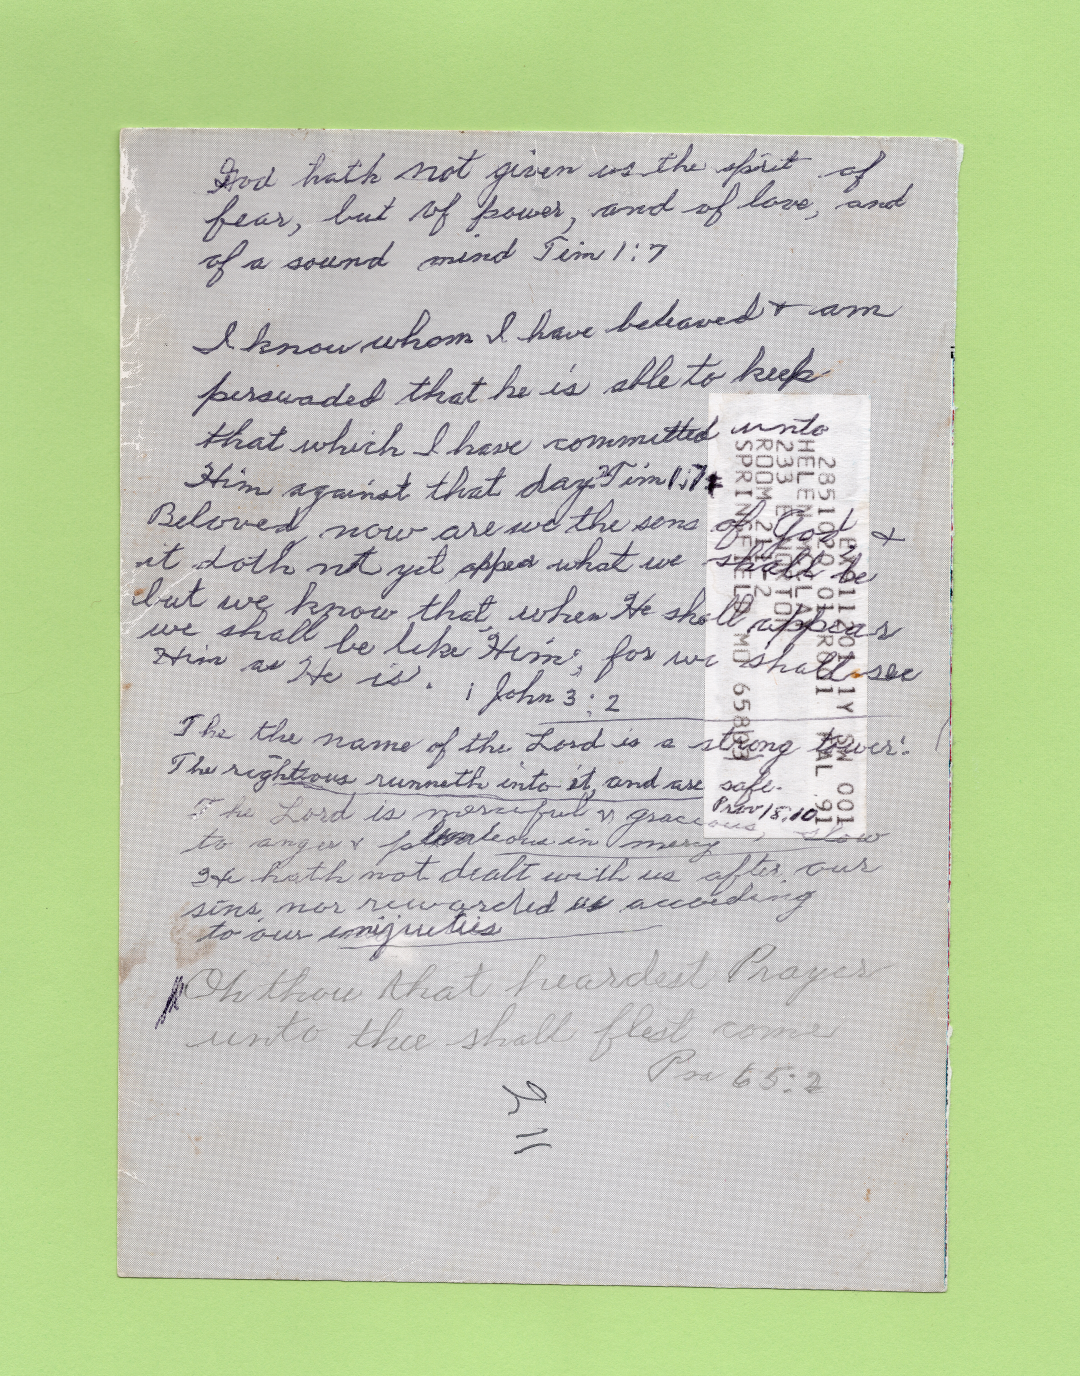 God hath not given us the spirit of
fear, but of power, and of love, and
of a sound mind Tim 1:7
I know whom I have beleaved & am
persuaded that he is able to keep
that which I have committed unto
Him against that day. 2 Tim 1:
Beloved, now are we the sons of God, &
it doth not yet appear what we shall be
but we know that, when He shall appear
we shall be like Him; for we shall see
Him as He is. 1 John 3:2
The the name of the Lord is a strong tower:
The rightious runneth into it, and are safe.
Prov 18:10
The Lord is merciful & gracious, slow
to anger & plenteous in mercy
He hath not dealt with us after our
sins, nor rewarded us according
to our
Oh thou that heardest Prayer
unto thee shall flest come
Psa 65:2
2 11
HELEN
233 E NORTON
ROOM
SPRINGFIELD MO